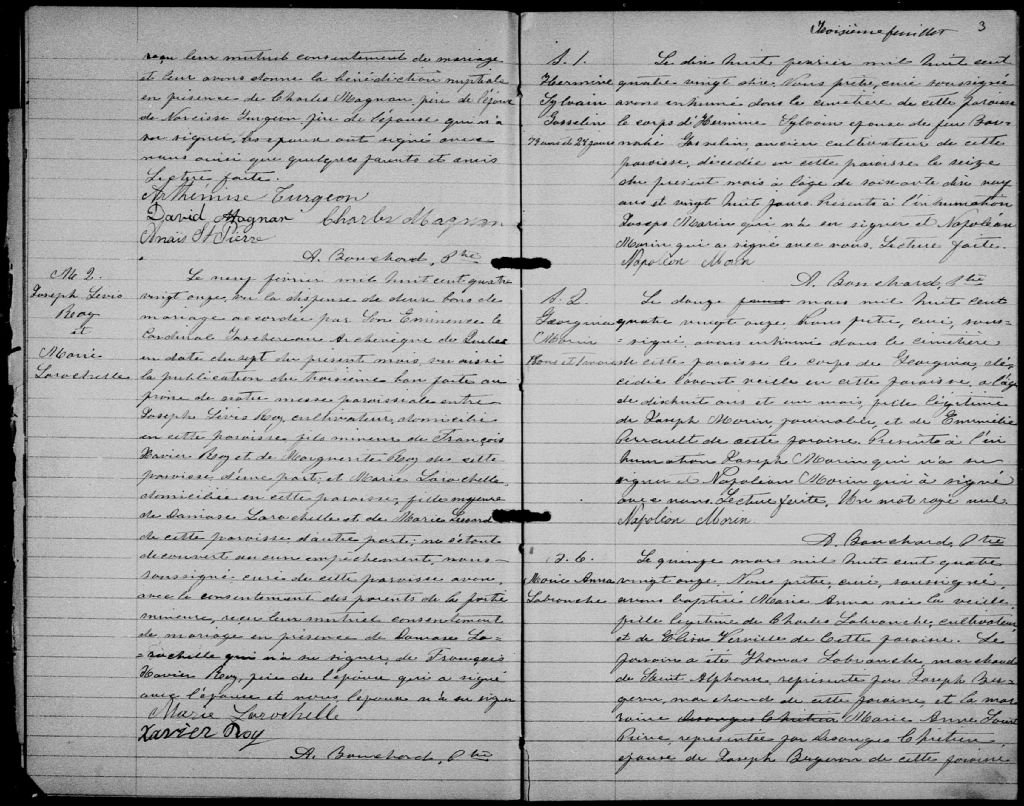 reçu leur mutuel consentement de mariage
et leur avons donné la bénédiction nuptiale
en présence de Charles Magnan, père de l'époux
de Narcisse Turgeon, père de l'épouse qui n'a
su signer. Les époux ont signé avec
nous ainsi que quelques parents et amis
Lecture faite.
Arthémise Turgeon
David Magnan Charles Magnan
Anais St Pierre
A. Bouchard, Ptre
M 2.
Joseph Lévis
Roy
et
Marie
Larochelle
Le neuf février mil huit cent quatre
vingt onze, vu la dispense de deux bans de
mariage accordée par Son Eminence le
Cardinal Taschereau Archevêque de Québec
en date du sept du présent mois, vu aussi
la publication du troisième ban faite au
prone de notre messe paroissiale entre
Joseph Lévis Roy, cultivateur, domicilié
en cette paroisse, fils mineur de François
Xavier Roy et de Marguerite Roy de cette
paroisse, d'une part; et Marie Larochelle
domiciliée en cette paroisse, fille majeure
de Damase Larochelle et de Marie
de cette paroisse d'autre part; ne s'étant
découvert aucun empêchement, nous
soussigné curé de cette paroisse avons,
avec le consentement des parents de la partie
mineure, reçu leur mutuel consentement
de mariage en présence de Damase La-
rochelle qui n'a su signer, de François
Xavier Roy, père de l'époux qui a signé
avec l'épouse et nous, l'époux n'a su signer
Marie Larochelle
Xavier Roy
A. Bouchard, Ptre
Troisième feuillet 3
S. 1.
Hermine
Sylvain
Gosselin
79 ans et 28 jours
Le dix huit février mil huit cent
quatre vingt onze. Nous prêtre, curé soussigné
avons inhumé dans le cimetière de cette paroisse
le corps d'Hermine Sylvain épouse de feu Bar-
nabé Gosselin, ancien cultivateur de cette
paroisse, décédée en cette paroisse le seize
du présent mois à l'âge de soixante dix neuf
ans et vingt huit jours. Présents à l'inhumation
Joseph Morin qui n'a su signer et Napoléon
Morin qui a signé avec nous. Lecture faite.
Napoléon Morin
A. Bouchard, Ptre
S. 2
Georgina
Morin
18 ans et 1 mois
Le douze mars mil huit cent
quatre vingt onze. Nous prêtre, curé, sous-
signé, avons inhumé dans le cimetière
de cette paroisse le corps de Georgina, dé-
cédée l'avant veille en cette paroisse, à l'âge
de dixhuit ans et un mois, fille légitime
de Joseph Morin, journalier, et de Emmélie
Perrault de cette paroisse. Présents à l'in-
humation Joseph Morin qui n'a su
signer et Napoléon Morin qui a signé
avec nous. Lecture faite. Un mot rayé nul
Napoléon Morin
A. Bouchard, Ptre
B. 6.
Marie Anna
Labranche
Le quinze mars mil huit cent quatre
vingt onze, Nous prêtre, curé, soussigné
avons baptisé Marie Anna née la veille,
fille légitime de Charles Labranche, cultivateur
et de Eliza Verville de Cette paroisse. Le
parrain a été Thomas Labranche, marchand
de Saint Alphonse, représenté par Joseph Ber-
geron, marchand de cette paroisse, et la mar-
raine Desanges Chretien Marie Anne Saint
Pierre, représentée par Desanges Chretien,
épouse de Joseph Bergeron de cette paroisse